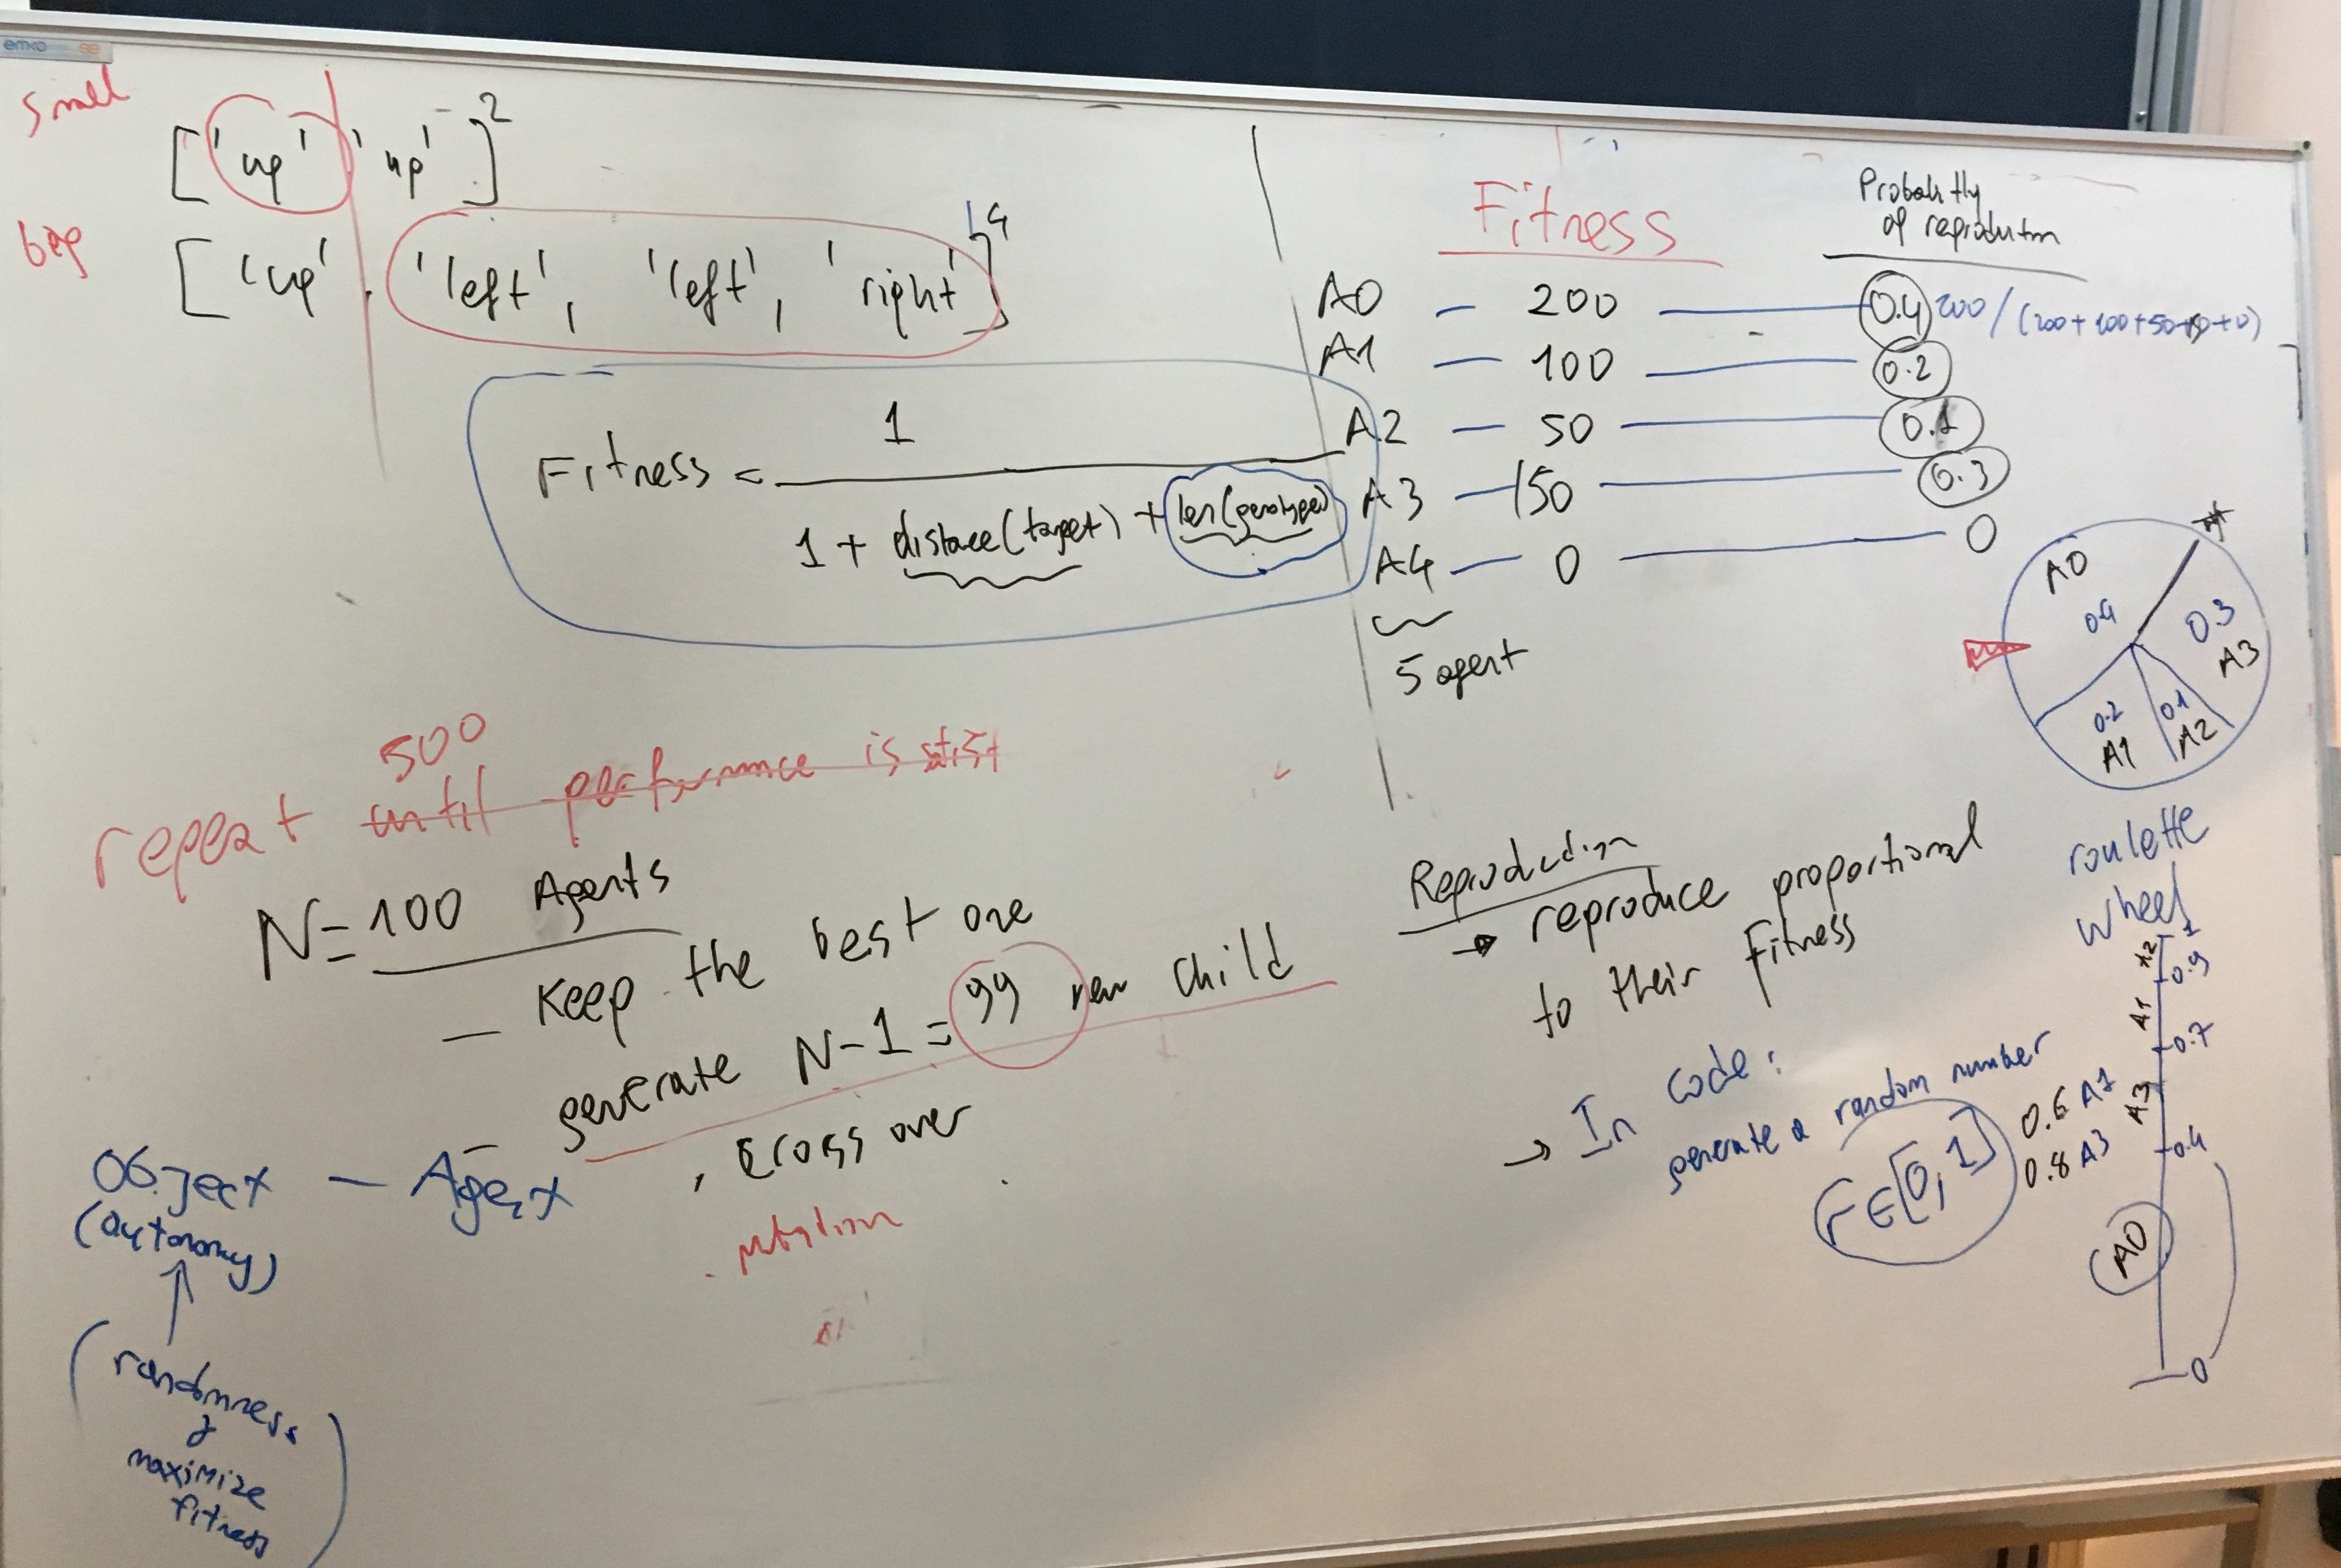 emko
small
['up' 'up']²
big
['up', 'left', 'left', 'right']⁴
Fitness = 1
1 + distace(target) + len(genotype)
Fitness
Probabitly
of reprodutm
A0 – 200 — 0.4 200/(200+100+50+150+0)
A1 – 100 — 0.2
A2 – 50 — 0.1
A3 – 150 — 0.3
A4 – 0 — 0
5 agent
A0
0.4
0.3
A3
0.2
A1
0.1
A2
roulette
wheel
500
repeat until performance is satisf
N=100 Agents
– Keep the best one
– generate N-1 = 99 new child
. Cross over
. mutation
Object – Agent
(autonomy)
(randomness
&
maximize
fitness)
Reproduction
→ reproduce proportional
to their Fitness
→ In code:
generate a random number
r∈[0,1]
0.6 A1
0.8 A3
1
A2
0.9
A1
0.7
A3
0.4
A0
0